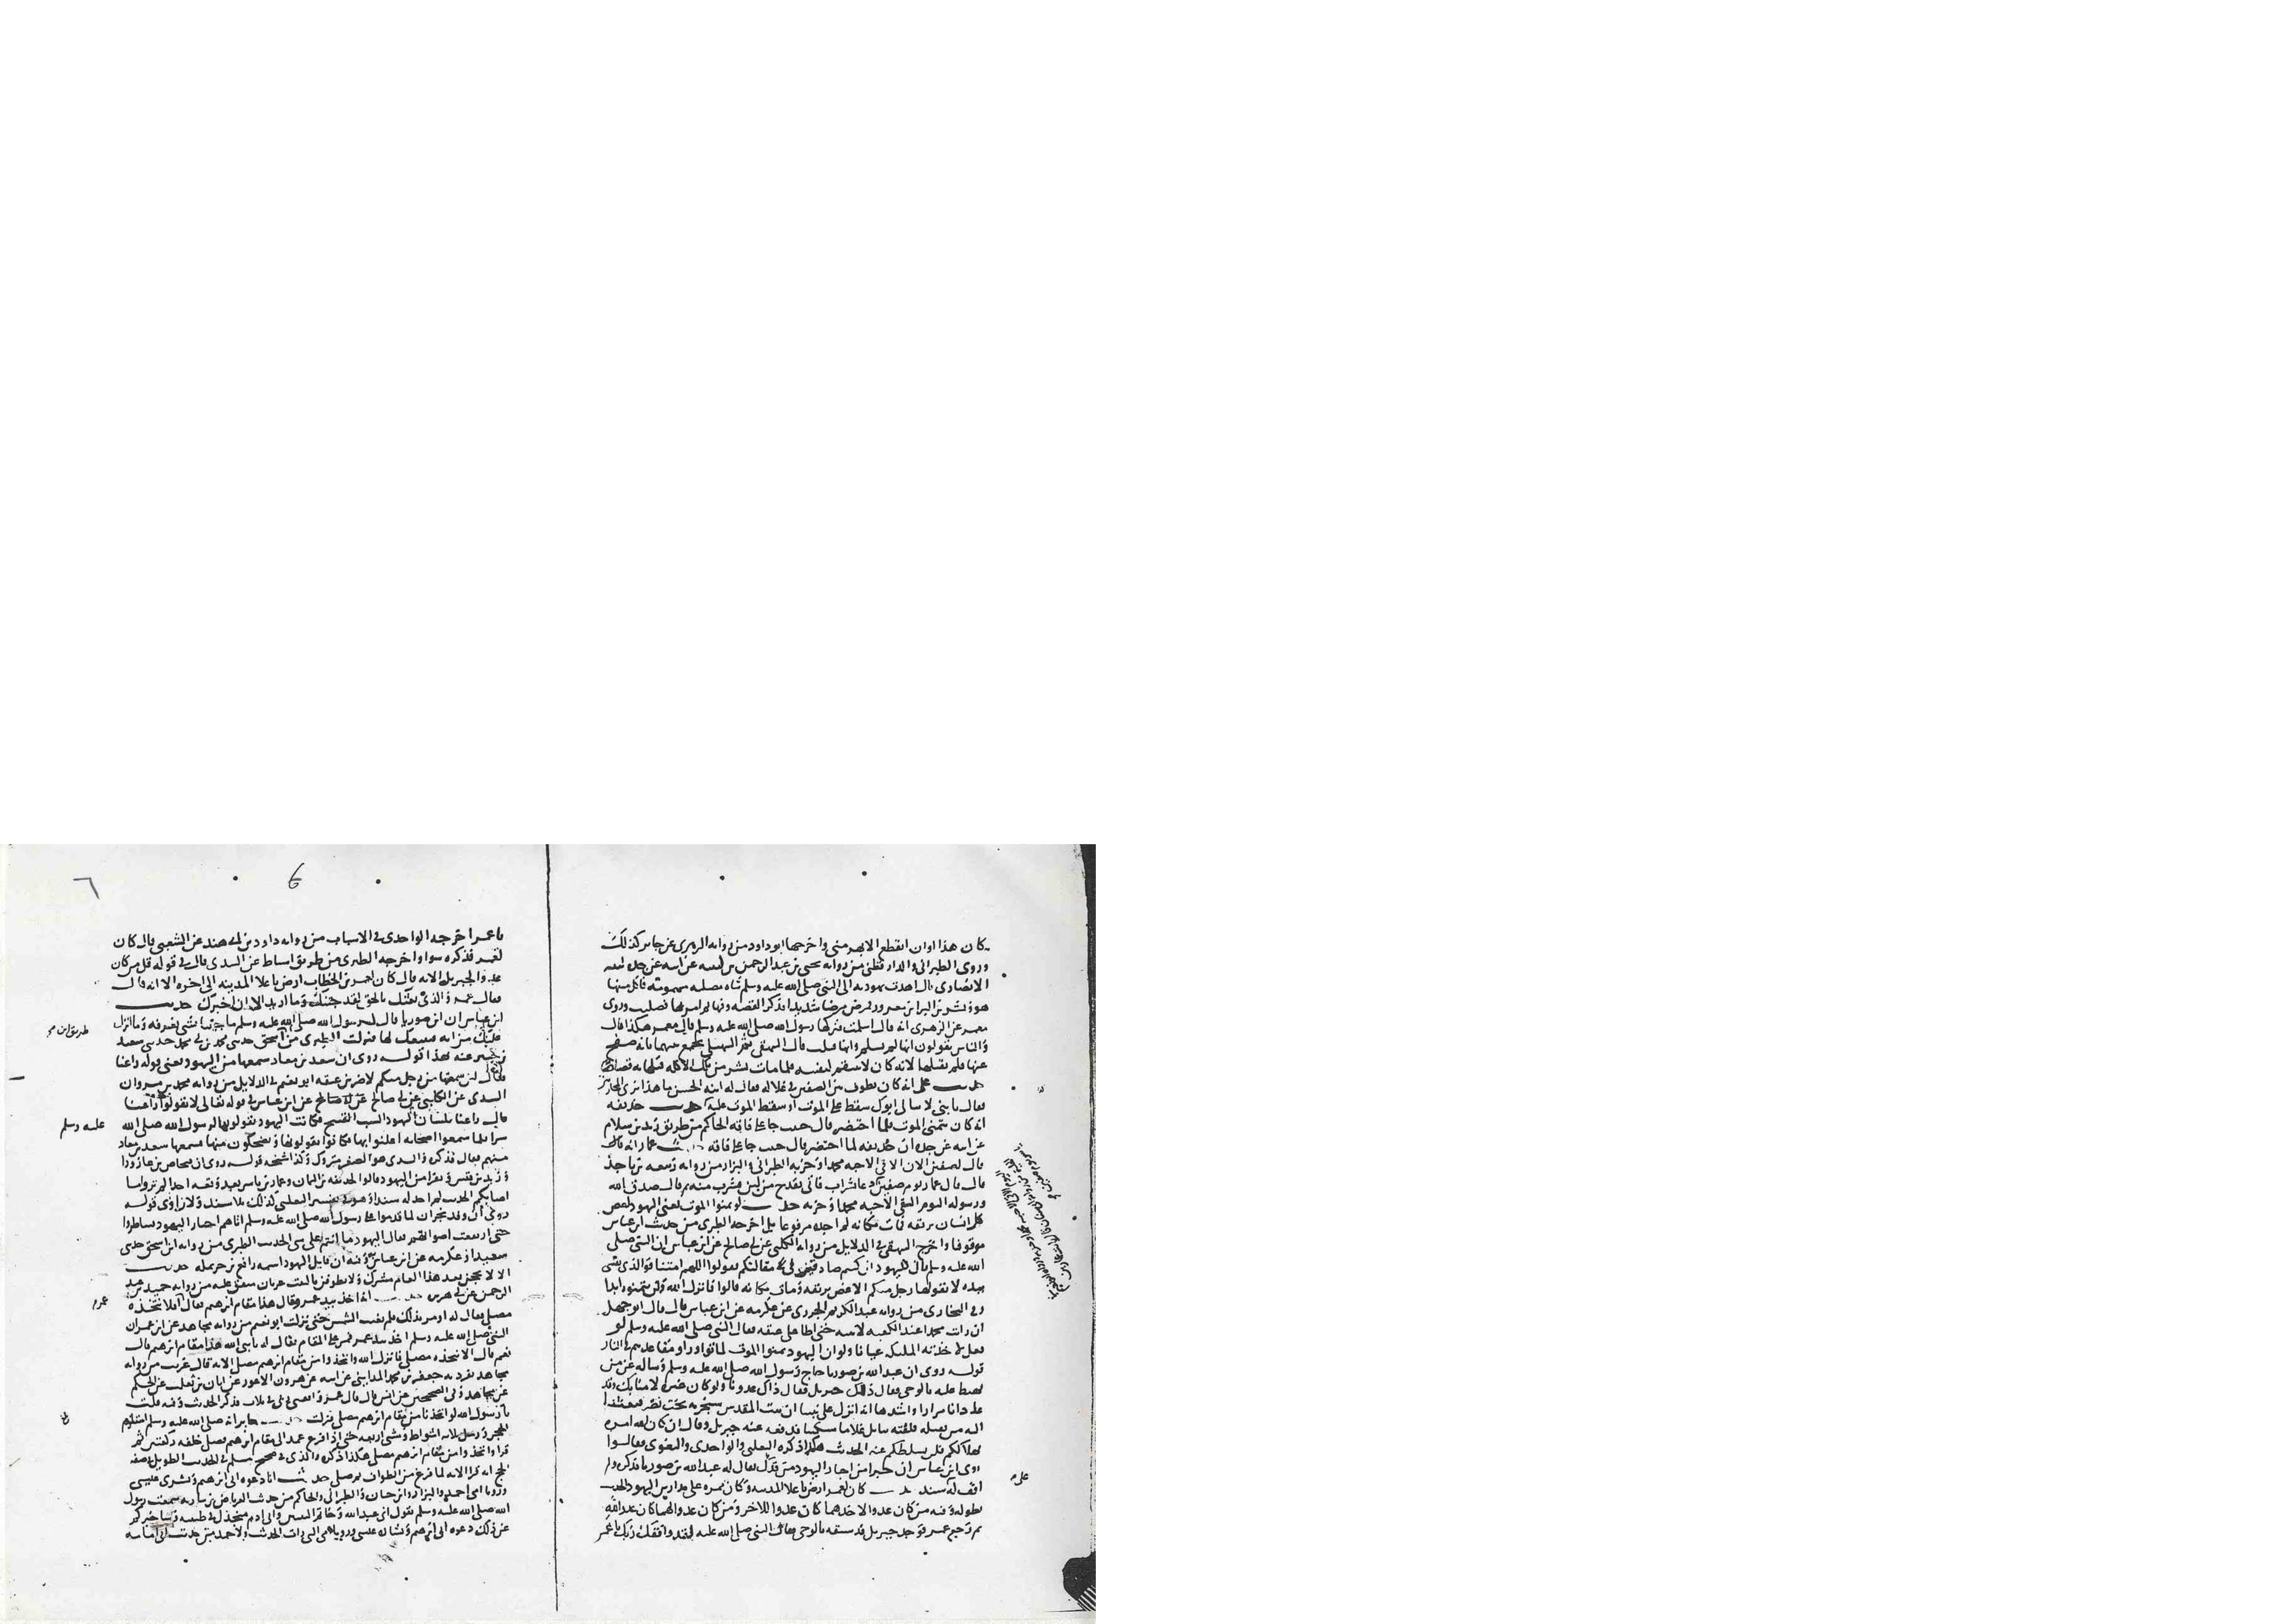 كان هذا اوان انقطع الابهر مني واخرجها ابو داود من رواية الزهري عن جابر كذلك
وروى الطبراني والدارقطني من رواية يحيى بن عبد الرحمن بن لبيبة عن ابيه عن جده لبيبة
الانصاري قال اهدت يهودية الى النبي صلى الله عليه وسلم شاة مصلية مسمومة فاكل منها
هو وبشر بن البرا بن معرور فمرض مرضا شديدا فذكر القصة وفيها ثم امر بها فصلبت وروى
معمر عن الزهري انه قال اسلمت فتركها رسول الله صلى الله عليه وسلم قال معمر هكذا قال
والناس يقولون انها لم تسلم وانها قتلت قال البيهقي ثم السهيلي يجمع بينهما بانه صفح
عنها فلم يقتلها لانه كان لا ينتقم لنفسه فلما مات بشر من تلك الاكلة قتلها به قصاصا
حديث علي انه كان يطوف بين الصفين في غلالة فقال له ابنه الحسن ما هذا بزي المحاربين
فقال يا بني لا يبالي ابوك سقط على الموت او سقط الموت عليه حديث حذيفة
انه كان يتمنى الموت فلما احتضر قال حبيب جا على فاقة الحاكم من طريق زيد بن سلام
عن ابيه عن جده ان حذيفة لما احتضر قال حبيب جا على فاقة حديث عمار انه قال
قال بصفين الان الاقي الاحبه محمدا وحزبه الطبراني والبزار من رواية ربيعة بن ناجد
قال قال عمار يوم صفين دعا بشراب فاتي بقدح من لبن فشرب منه ثم قال صدق الله
ورسوله اليوم القى الاحبه محمدا وحزبه حديث لو تمنوا الموت يعني اليهود لغص
كل انسان بريقه فمات مكانه لم اجده مرفوعا بل اخرجه الطبري من حديث ابن عباس
موقوفا واخرج البيهقي في الدلايل من رواية الكلبي عن ابي صالح عن ابن عباس ان النبي صلى
الله عليه وسلم قال لليهود ان كنتم صادقين في مقالتكم فقولوا اللهم امتنا فوالذي نفسي
بيده لا يقولها رجل منكم الا غص بريقه ومات مكانه قالوا فانزل الله ولن يتمنوه ابدا
وفي البخاري من رواية عبد الكريم الجزري عن عكرمة عن ابن عباس قال قال ابو جهل
ان رايت محمدا عند الكعبة لاتيته حتى اطا على عنقه فقال النبي صلى الله عليه وسلم لو
فعل لاخذته الملايكة عيانا ولو ان اليهود تمنوا الموت لماتوا وراوا مقاعدهم في النار
قوله روى ان عبد الله بن صوريا حاج رسول الله صلى الله عليه وسلم وساله عن من
يهبط عليه بالوحي فقال ذلك جبريل فقال ذاك عدونا ولو كان غيره لامنا بك وقد
عادانا مرارا واشدها انه انزل على نبينا ان بيت المقدس سيخربه بخت نصر فبعثنا
اليه من يقتله فلقيه ببابل غلاما مسكينا فدفع عنه جبريل وقال ان كان الله امره
بهلاككم فلن يسلطكم عليه الحديث هكذا ذكره الثعلبي والواحدي والبغوي فقالوا
روى ابن عباس ان حبرا من احبار اليهود من فدك يقال له عبد الله بن صوريا فذكره ولم
اقف له سند حديث كان لعمر ارض باعلا المدينة وكان ممره على مدارس اليهود الحديث
بطوله وفيه من كان عدوا لاحدهما كان عدوا للاخر ومن كان عدوا لهما كان عدوا لله
ثم رجع عمر فوجد جبريل قد سبقه بالوحي فقال النبي صلى الله عليه لقد وافقك ربك يا عمر
علي م
6
٦
يا عمر اخرجه الواحدي في الاسباب من رواية داود بن ابي هند عن الشعبي قال كان
لعمر فذكره سوا واخرجه الطبري من طريق اسباط عن السدي قال في قوله قل من كان
عدوا لجبريل الاية قال كان لعمر بن الخطاب ارض باعلا المدينة الى اخره الا انه قال
فقال عمر والذي بعثك بالحق لقد جئتك وما اريد الا ان اخبرك حديث
ابن عباس ان ابن صوريا قال لرسول الله صلى الله عليه وسلم ما جئتنا بشي نعرفه وما انزل
عليك من اية فنتبعك لها فنزلت الطبري من اسحق حدثني محمد بن ابي محمد حدثني سعيد
بن جبير عنه بهذا قوله روى ان سعد بن معاذ سمعها من اليهود يعني قوله راعنا
فقال لين سمعتها من رجل منكم لاضربن عنقه ابو نعيم في الدلايل من رواية محمد بن مروان
السدي عن الكلبي عن ابي صالح عن ابن عباس في قوله تعالى لا تقولوا راعنا
قال راعنا بلسان اليهود السب القبيح فكانت اليهود تقولها لرسول الله صلى الله
سرا فلما سمعوا اصحابه اعلنوا بها فكانوا يقولونها ويضحكون منها فسمعها سعد بن معاذ
منهم فقال فذكره والسدي هو الصغير متروك وكذا شيخه قوله روى ان فنحاص بن عازورا
وزيد بن قيس ونفرا من اليهود قالوا لحذيفة بن اليمان وعمار بن ياسر بعد وقعة احد الم تروا ما
اصابكم الحديث لم اجد له سندا وهو في تفسير الثعلبي كذلك بلا سند ولا راوي قوله
روى ان وفد نجران لما قدموا على رسول الله صلى الله عليه وسلم اتاهم احبار اليهود فتناظروا
حتى ارتفعت اصواتهم فقال اليهود ما انتم على شي الحديث الطبري من رواية ابن اسحق حدثني
سعيد او عكرمة عن ابن عباس وفيه ان قايل اليهود اسمه رافع بن حرملة حديث
الا لا يحجن بعد هذا العام مشرك ولا يطوفن بالبيت عريان متفق عليه من رواية حميد بن عبد
الرحمن عن ابي هريرة حديث انه اخذ بيد عمر وقال هذا مقام ابراهيم فقال افلا نتخذه
مصلى فقال له اومر بذلك فلم تغب الشمس حتى نزلت ابو نعيم من رواية مجاهد عن ابن عمر ان
النبي صلى الله عليه وسلم اخذ بيد عمر فمر على المقام فقال له يا نبي الله هذا مقام ابراهيم قال
نعم قال الا نتخذه مصلى فانزل الله واتخذوا من مقام ابراهيم مصلى الاية قال غريب من رواية
مجاهد تفرد به جعفر بن محمد المدايني عن ابيه عن هرون الاعور عن ابان بن تغلب عن الحكم
عن مجاهد وفي الصحيحين عن انس قال قال عمر وافقني ربي في ثلاث فذكر الحديث وفيه قلت
يا رسول الله لو اتخذنا من مقام ابراهيم مصلى فنزلت حديث جابر انه صلى الله عليه وسلم استلم
الحجر ورمل ثلاثة اشواط ومشى اربعة حتى اذا فرغ عمد الى مقام ابراهيم فصلى خلفه ركعتين ثم
قرا واتخذوا من مقام ابراهيم مصلى هكذا ذكره والذي في صحيح مسلم في الحديث الطويل في صفة
الحج انه قرا الاية لما فرغ من الطواف ثم صلى حديث انا دعوة ابي ابراهيم وبشرى عيسى
ورويا امي احمد والبزار وابن حبان والطبراني والحاكم من حديث العرباض بن سارية سمعت رسول
الله صلى الله عليه وسلم يقول اني عبد الله وخاتم النبيين وابي ادم منجدل في طينته وساخبركم
عن ذلك دعوة ابي ابراهيم وبشارة عيسى ورويا امي التي رات الحديث ولاحمد من حديث ابي امامة
طريق ابن
عليه وسلم